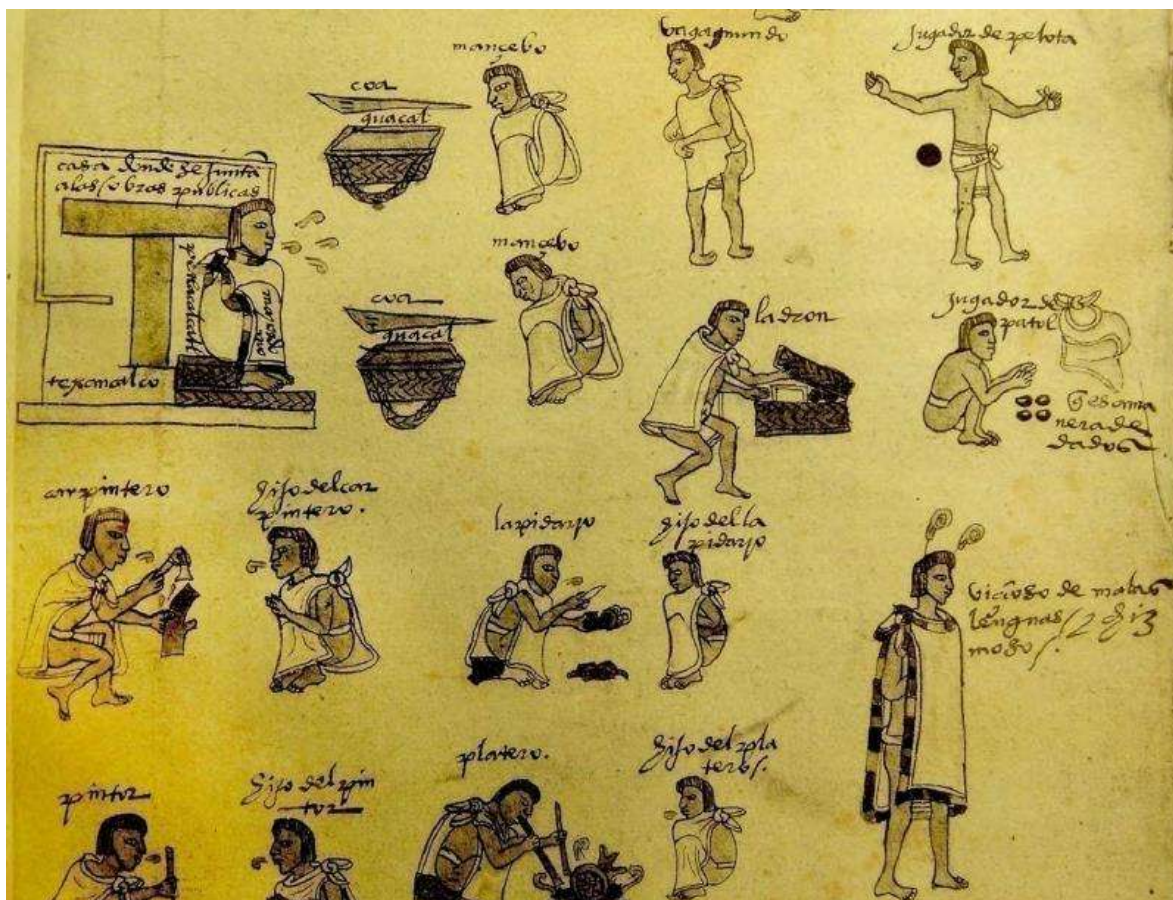 coa
guacal
mançebo
bagamundo
jugador de pelota
casa donde se junta
a las / obras publicas
petlacalcatl
mayordo
mo
texancalco
coa
guacal
mançebo
ladron
jugador de
patol
q̃ es a ma
nera de
dados
carpintero
hijo del car
pintero.
lapidario
hijo del la
pidario
viçioso de malas
lenguas / y chis
moso /.
pintor
hijo del pin
tor
platero.
hijo del pla
tero /.